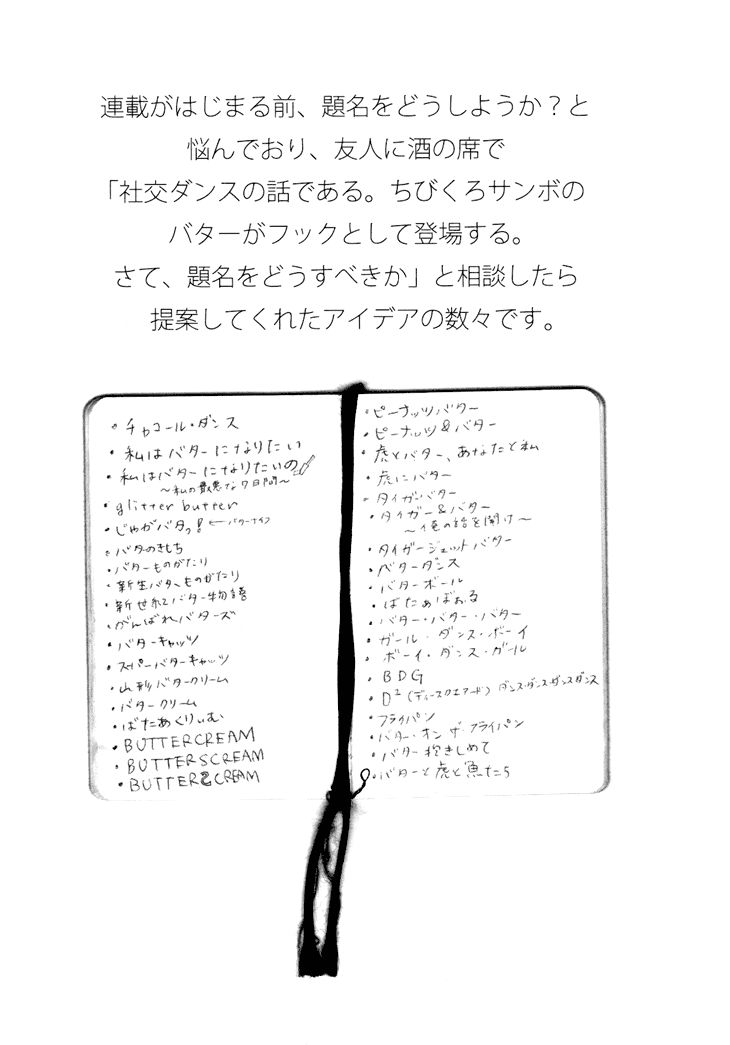 連載がはじまる前、題名をどうしようか？と
悩んでおり、友人に酒の席で
「社交ダンスの話である。ちびくろサンボの
バターがフックとして登場する。
さて、題名をどうすべきか」と相談したら
提案してくれたアイデアの数々です。
・チャコール・ダンス
・私はバターになりたい
・私はバターになりたいの
～私の最悪な7日間～
・glitter butter
・じゃがバタっ! ←バターナイフ
・バタのきもち
・バターものがたり
・新生バターものがたり
・新世紀バター物語
・がんばれバターズ
・バターキャッツ
・スーパーバターキャッツ
・山形バタークリーム
・バタークリーム
・ばたあくりぃむ
・BUTTERCREAM
・BUTTERSCREAM
・BUTTER2CREAM
・ピーナッツバター
・ピーナッツ&バター
・虎とバター、あなたと私
・虎にバター
・タイガーバター
・タイガー&バター
～俺の話を聞け～
・タイガージェットバター
・ベターダンス
・バターボール
・ばたあぼおる
・バター・バター・バター
・ガール・ダンス・ボーイ
・ボーイ・ダンス・ガール
・BDG
・D² (ディースクエアード) ダンス・ダンス・ダンスダンス
・フライパン
・バター・オン ザ フライパン
・バター抱きしめて
・バターと虎と魚たち